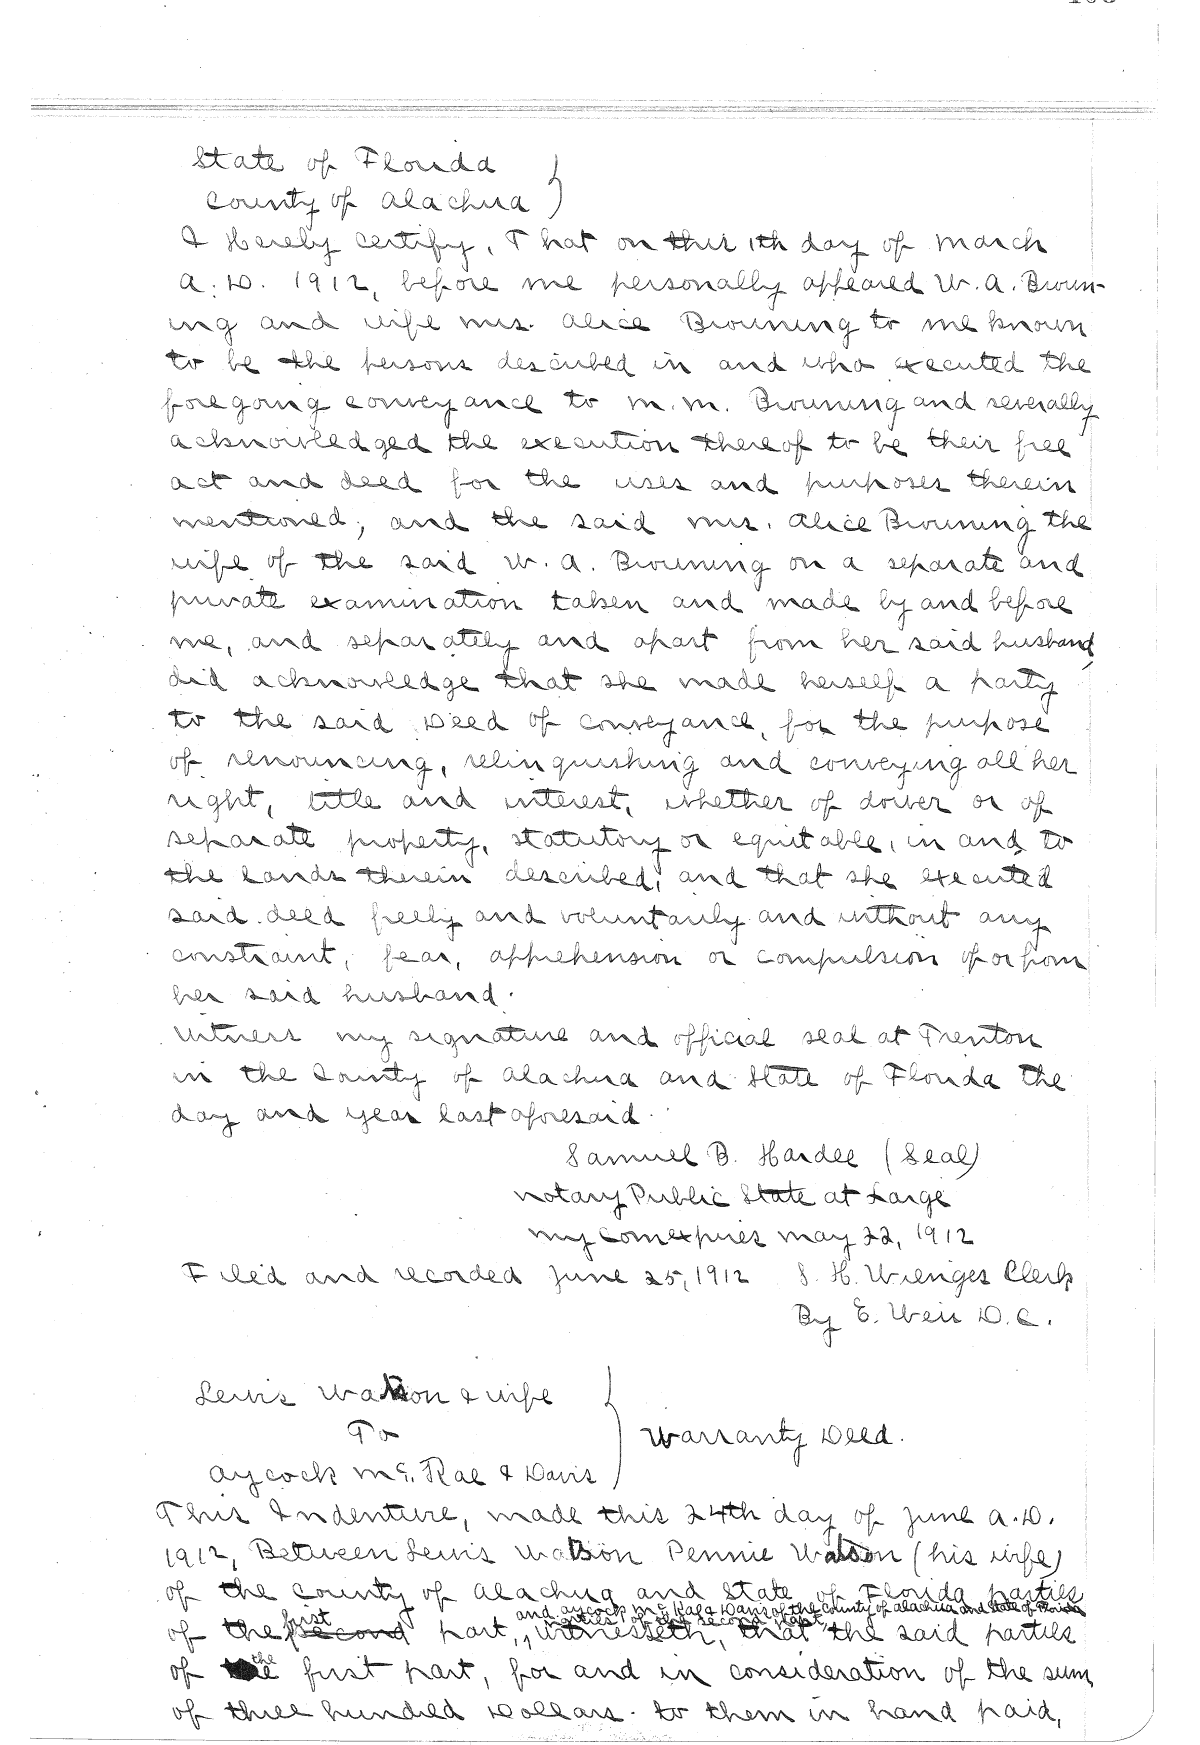 State of Florida
County of Alachua
I Hereby certify, That on this 11th day of March
A.D. 1912, before me personally appeared W. A. Brown-
ing and wife Mrs. Alice Browning to me known
to be the persons described in and who executed the
foregoing conveyance to M. M. Browning and severally
acknowledged the execution thereof to be their free
act and deed for the uses and purposes therein
mentioned; and the said Mrs. Alice Browning the
wife of the said W. A. Browning on a separate and
private examination taken and made by and before
me, and separately and apart from her said husband,
did acknowledge that she made herself a party
to the said Deed of conveyance, for the purpose
of renouncing, relinquishing and conveying all her
right, title and interest, whether of dower or of
separate property, statutory or equitable, in and to
the lands therein described, and that she executed
said deed freely and voluntarily and without any
constraint, fear, apprehension or compulsion of or from
her said husband.
Witness my signature and official seal at Trenton
in the County of Alachua and State of Florida the
day and year last aforesaid.
Samuel B. Hardee (Seal)
Notary Public State at Large
my com expires May 22, 1912
Filed and recorded June 25, 1912 S. H. Wienges Clerk
By E. Weir D.C.
Lewis Watson & wife
To
Warranty Deed.
Aycock Mc. Rae & Davis
This Indenture, made this 24th day of June A.D.
1912, Between Lewis Watson Pennie Watson (his wife)
of the County of Alachua and State of Florida parties
and Aycock Mc Rae & Davis of the County of Alachua and State of Florida
first parties of the second part,
of the second part, witnesseth, that the said parties
of the first part, for and in consideration of the sum
of three hundred Dollars. to them in hand paid,